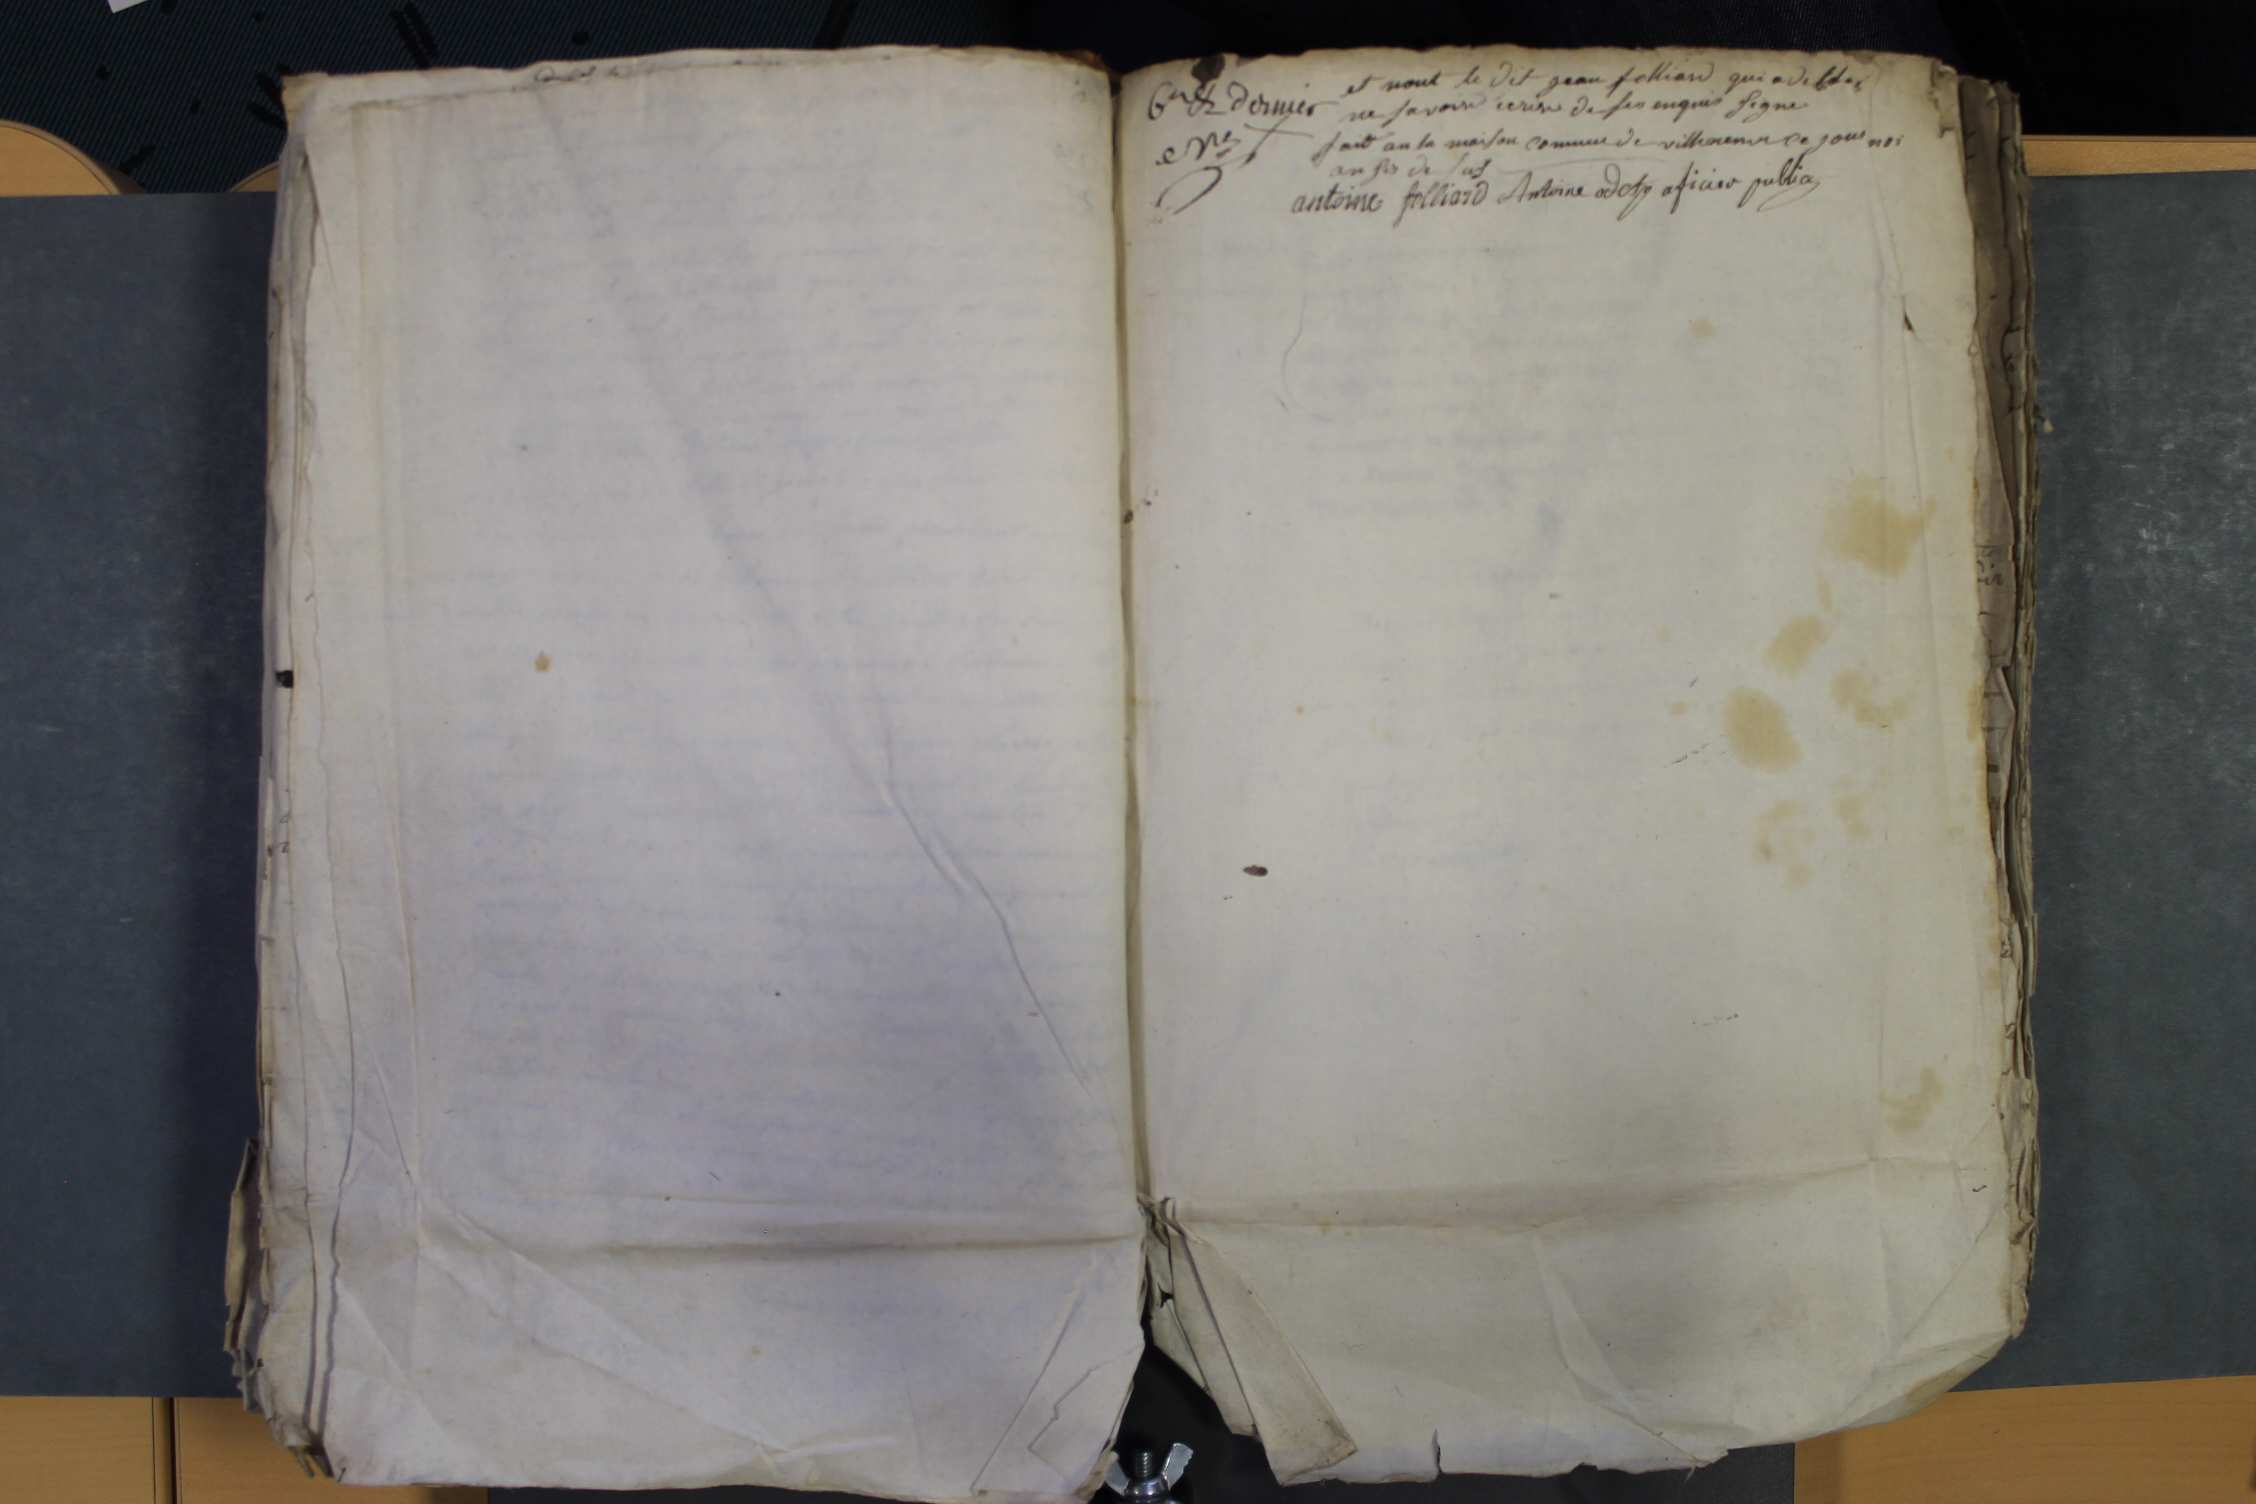 6me & dernier
et nont le dit jean folliard qui a de
ne savoire ecrire de ses enquis signe
fait an la maison commune de villeneuve ce jour moi
an fis de sus
antoine folliard Antoine odet oficier public